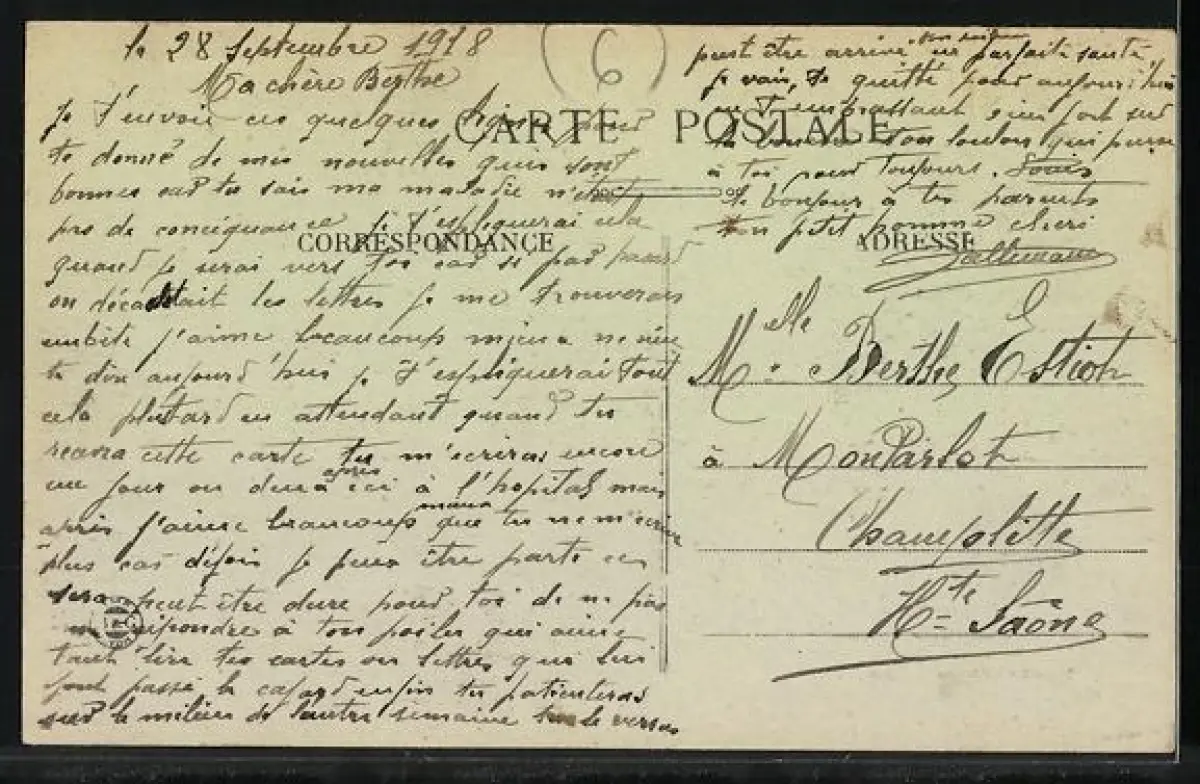 le 28 Septembre 1918
Ma chère Berthe
Je t'envoie ces quelques lignes pour
te donné de mes nouvelles qui sont
bonnes car tu sais ma maladie n'était
pas de conciéquance je t'espliquerai cela
quand je serai vers toi car si par hasard
on décachtait les lettres je me trouverais
embêté j'aime beaucoups mieux ne rien
te dire aujourd'hui je t'espliquerai tout
cela plutard en attendant quand tu
recevra cette carte tu m'écriras encore
un jour ou deux après ici à l'hopital mais
après j'aime beaucoups mieux que tu ne m'écrive
plus car défois je peux être parti ce
sera peut être dure pour toi de ne pas
répondre à ton poilu qui aime
tant lire tes cartes ou lettres qui lui
font passé le cafard enfin tu patienteras
sur le milieu de l'autre semaine tu le verras
peut être arrivé en parfaite santé
je vais, te quitté pour aujourd'hui
en t'embrassant bien fort sur
ta bouche ton loulou qui pense
à toi pour toujours. Louis
le bonjour à tes parents
Ton petit homme cheri
CARTE POSTALE
CORRESPONDANCE
ADRESSE
6
Melle Berthe Estiot
à MonParlot
Champlitte
Hte Saône